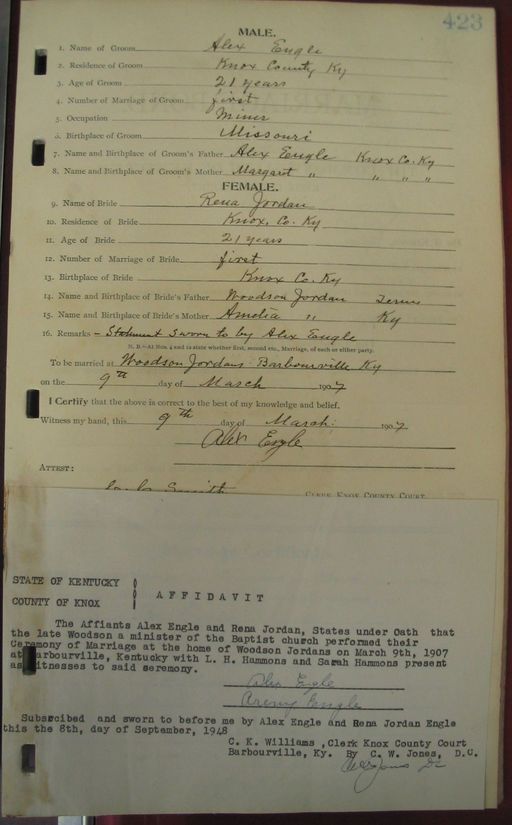 423
MALE.
1. Name of Groom Alex Engle
2. Residence of Groom Knox County Ky
3. Age of Groom 21 years
4. Number of Marriage of Groom first
5. Occupation Miner
6. Birthplace of Groom Missouri
7. Name and Birthplace of Groom's Father Alex Engle Knox Co. Ky
8. Name and Birthplace of Groom's Mother Margaret " " " "
FEMALE.
9. Name of Bride Rena Jordan
10. Residence of Bride Knox, Co. Ky
11. Age of Bride 21 years
12. Number of Marriage of Bride first
13. Birthplace of Bride Knox Co. Ky
14. Name and Birthplace of Bride's Father Woodson Jordan Tenn
15. Name and Birthplace of Bride's Mother Amelia " Ky
16. Remarks - Statement sworn to by Alex Engle
N. B.—At Nos. 4 and 12 state whether first, second etc., Marriage, of each or either party.
To be married at Woodson Jordans Barbourville Ky
on the 9th day of March 1907
I Certify that the above is correct to the best of my knowledge and belief.
Witness my hand, this 9th day of March. 1907
Alex Engle
ATTEST:
Smith CLERK KNOX COUNTY COURT
STATE OF KENTUCKY
COUNTY OF KNOX
AFFIDAVIT
The Affiants Alex Engle and Rena Jordan, States under Oath that
the late Woodson a minister of the Baptist church performed their
Ceremony of Marriage at the home of Woodson Jordans on March 9th, 1907
at Barbourville, Kentucky with L. H. Hammons and Sarah Hammons present
as witnesses to said seremony.
Alex Engle
Engle
Subscribed and sworn to before me by Alex Engle and Rena Jordan Engle
this the 8th, day of September, 1948
C. K. Williams ,Clerk Knox County Court
Barbourville, Ky. By C. W. Jones, D.C.
CW Jones DC